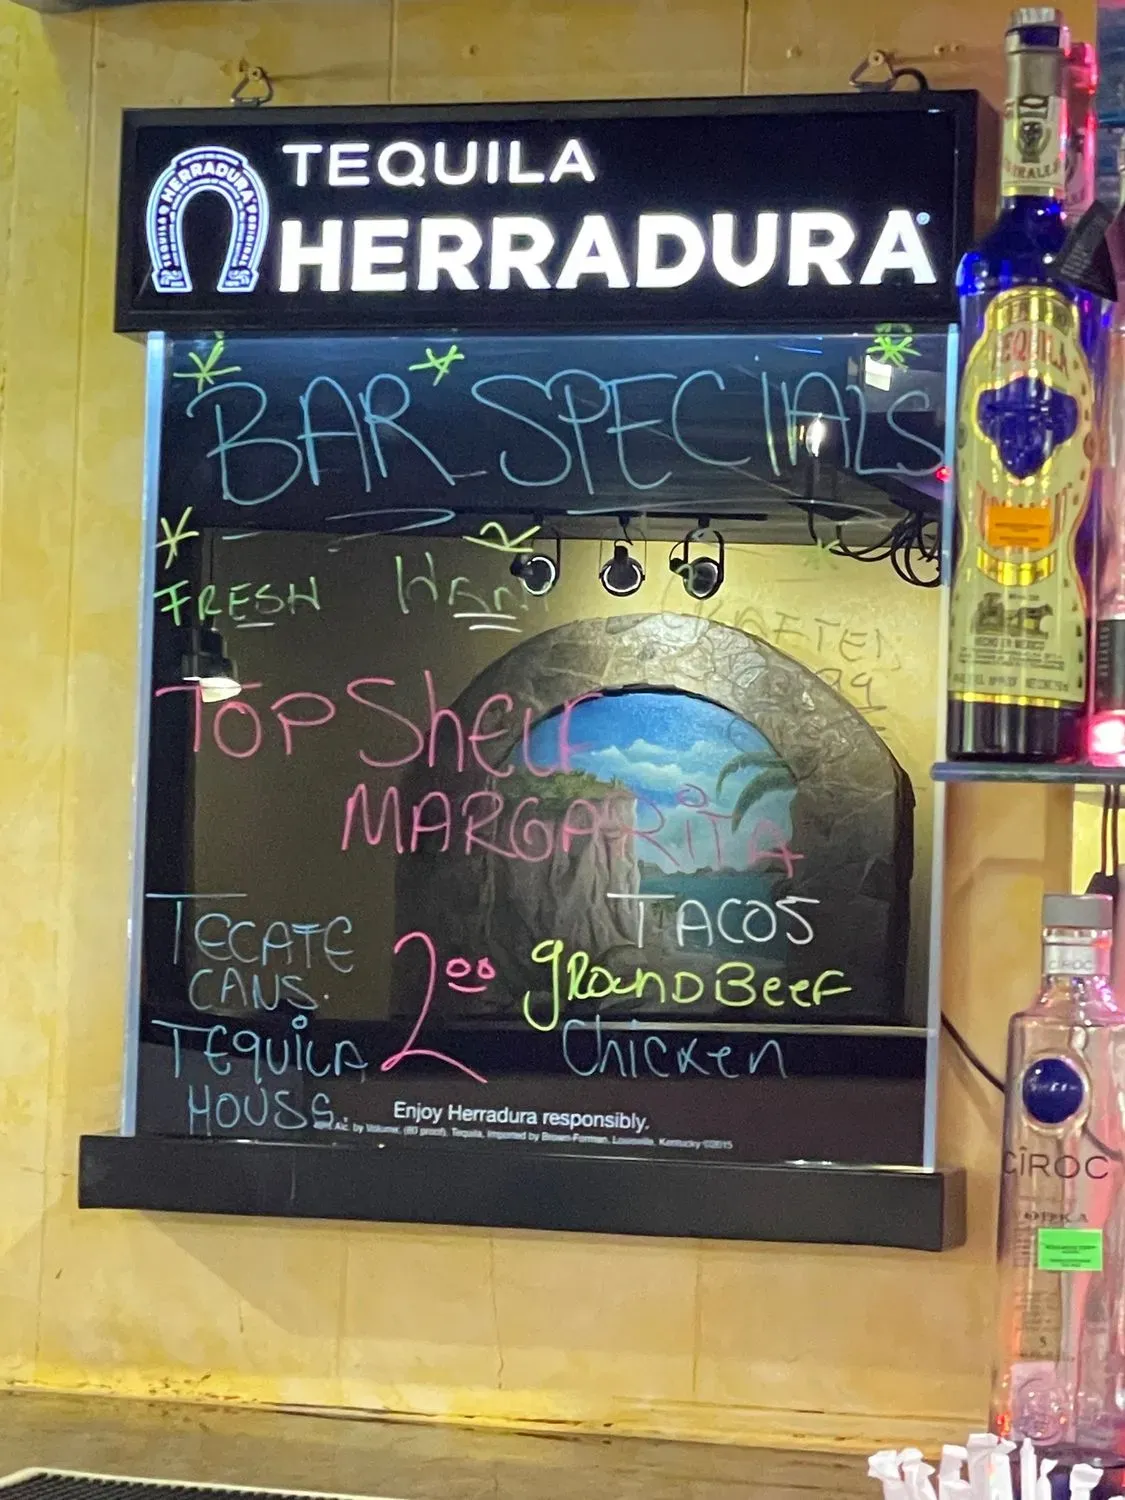 TEQUILA
HERRADURA
HERRADURA
BAR SPECIALS
FRESH HAND CRAFTED
99
TOP SHELF
MARGARITA
TECATE
CANS.
TEQUILA
HOUSE.
2.00
TACOS
GROUND BEEF
Chicken
Enjoy Herradura responsibly.
Alc. by Volume, (80 proof), Tequila, Imported by Brown-Forman, Louisville, Kentucky ©2015
TEQUILA
HECHO EN MEXICO
CÎROC
CÎROC
VODKA